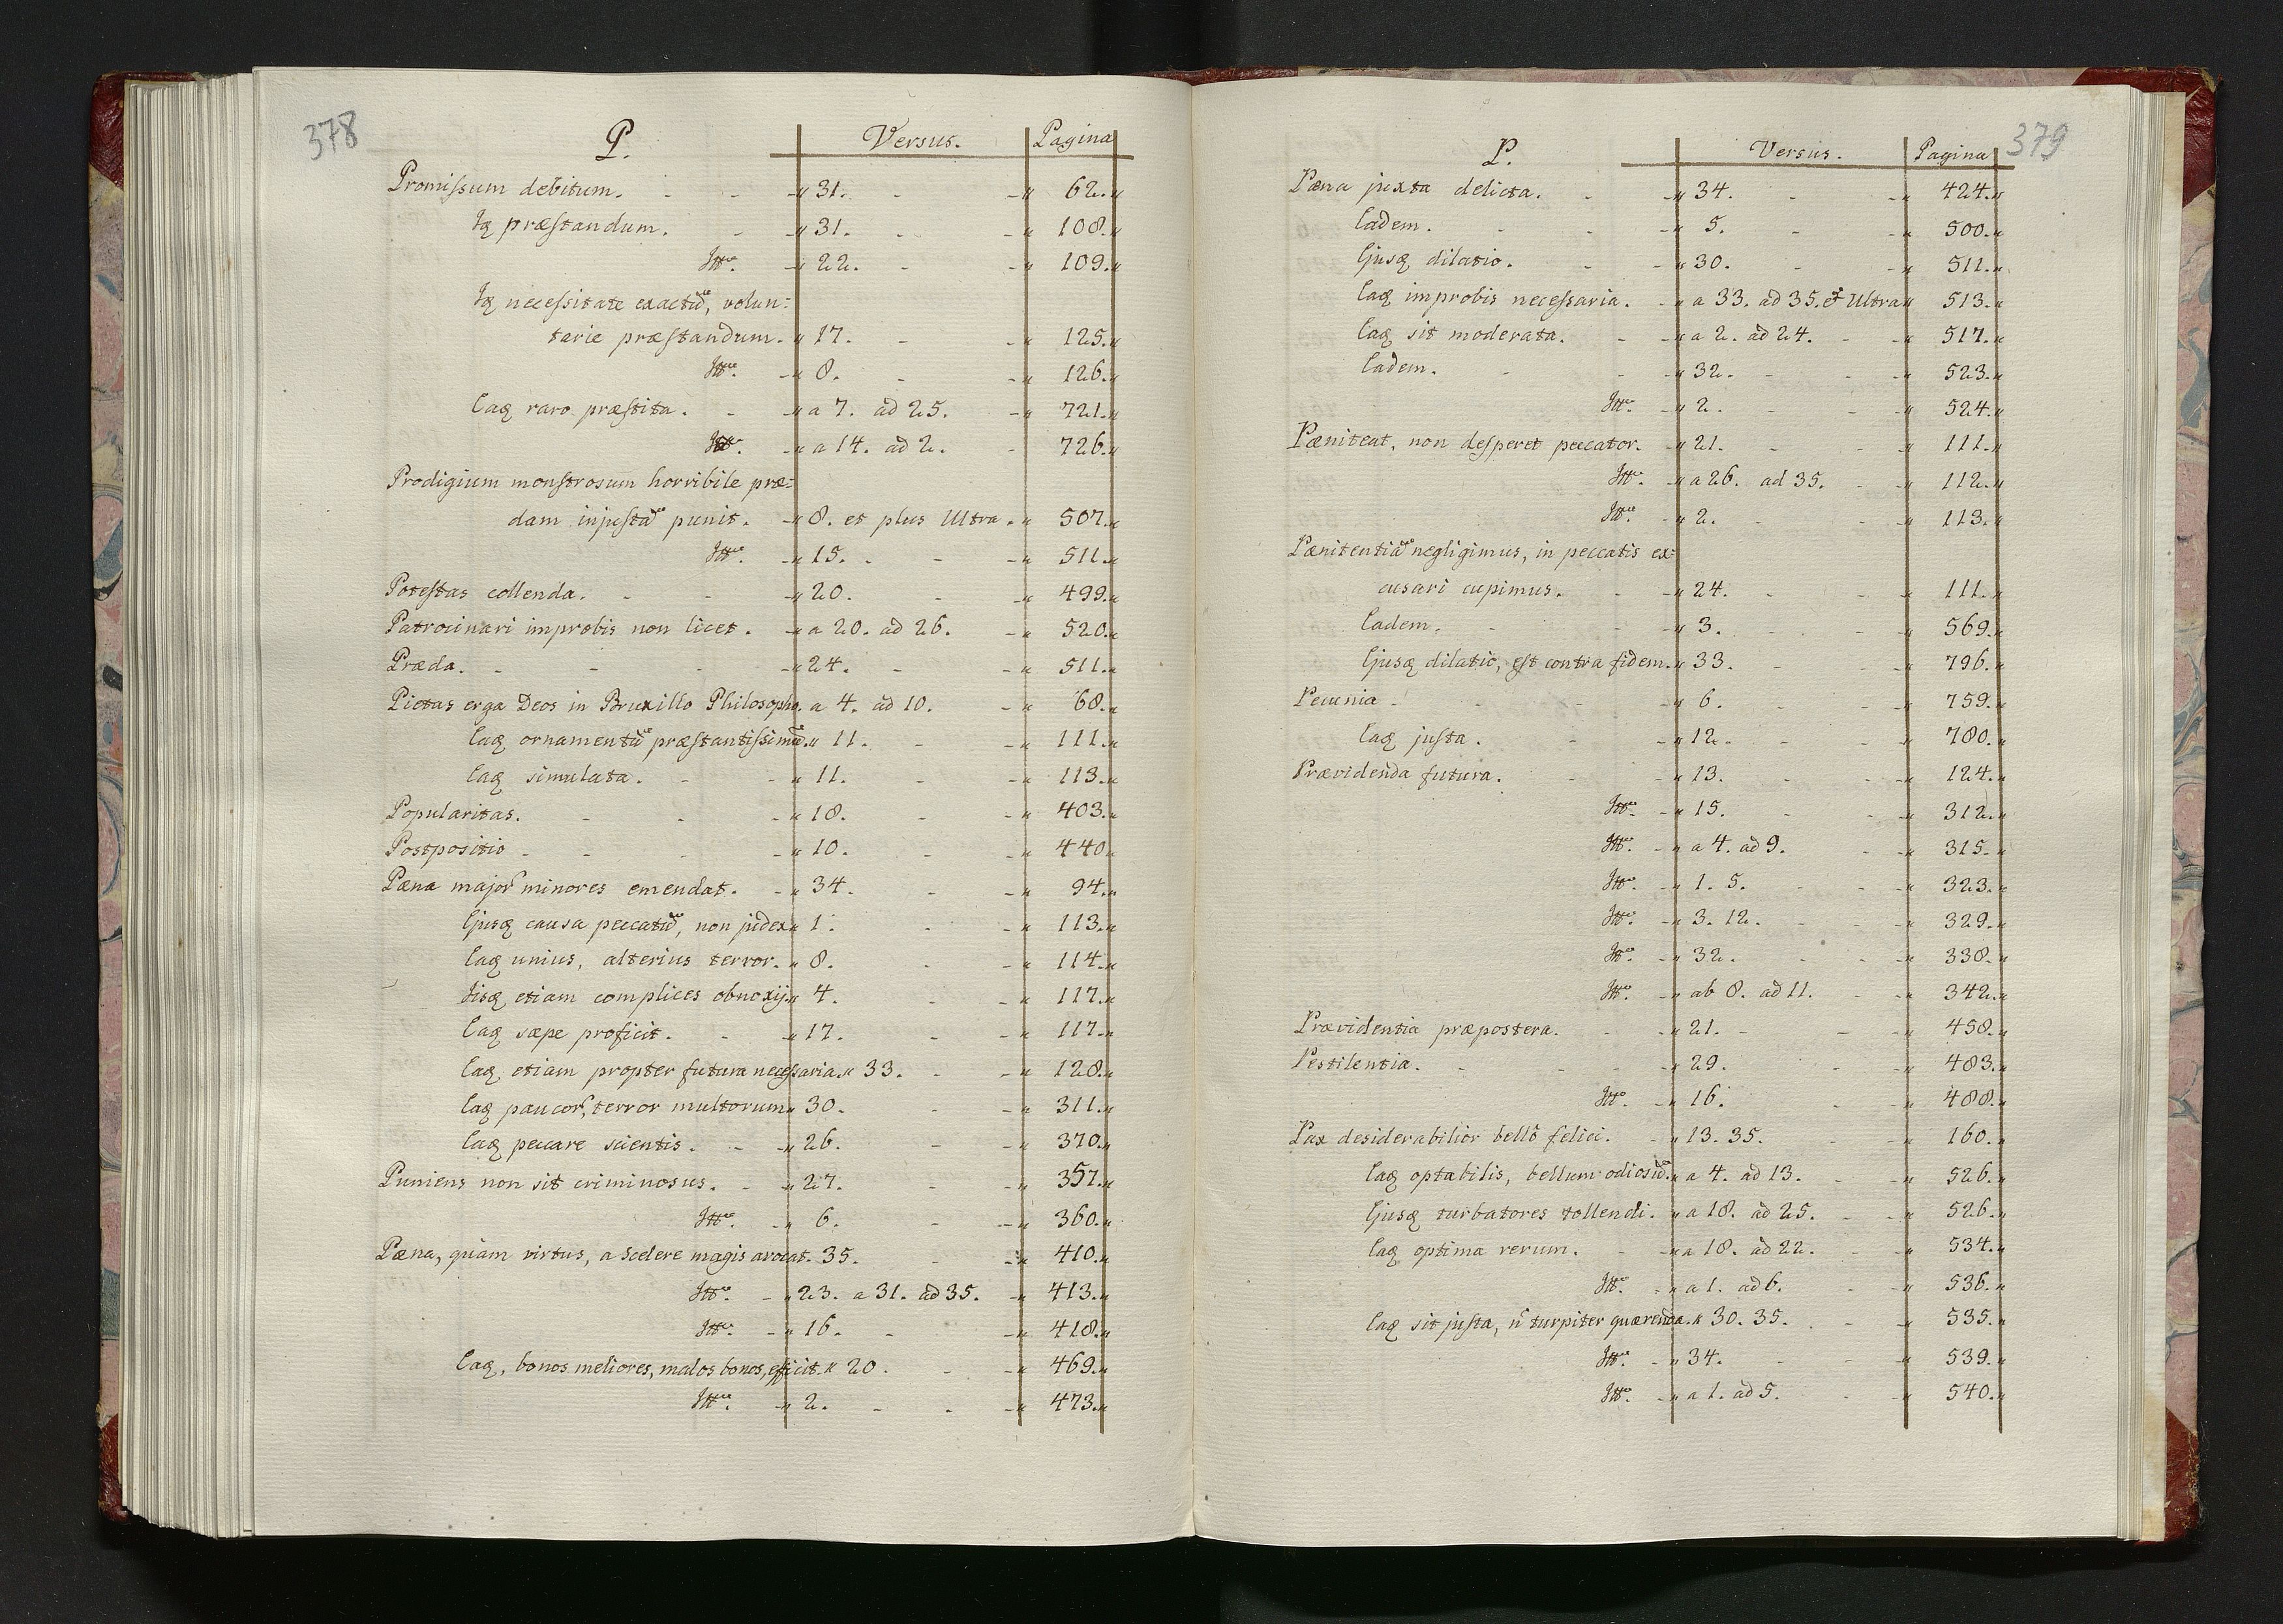 378
P. Versus. Pagina
Promissum debitum. - - -„ 31. - -„ 62.„
Iq præstandum. - -„ 31. - -„ 108.„
Itt. -„ 22. - -„ 109.„
Iq necessitate exactũ, volun-
tarie præstandum. „ 17. - -„ 125.„
Itt. -„ 8. - -„ 126.„
Eaq raro præstita. - -„ a 7. ad 25. -„ 721.„
Itt. -„ a 14. ad 2. - 726.„
Prodigium monstrosum horribile præ-
dam injustã punit. -„ 8. et plus Ultra. „ 507.„
Itt. -„ 15. - - -„ 511.„
Potestas collenda. - - -„ 20. - -„ 499.„
Patrocinari improbis non licet. -„ a 20. ad 26. -„ 520.„
Præda. - - - -„ 24. - -„ 511.„
Pietas erga Deos in Bruxillo Philosopho. a 4. ad 10. -„ 68.„
Eaq ornamentũ præstantissimũ.„ 11. - -„ 111.„
Eaq simulata. - -„ 11. - -„ 113.„
Popularitas. - - -„ 18. - -„ 403.„
Postpositio - - - -„ 10. - -„ 440„
Pæna major minores emendat. -„ 34. - -„ 94.„
Ejusq causa peccatũ, non judex„ 1. - -„ 113.„
Eaq unius, alterius terror. „ 8. - -„ 114.„
Iisq etiam complices obnoxij.„ 4. - -„ 117.„
Eaq sæpe proficit. - -„ 17. - -„ 117.„
Eaq etiam propter futura necessaria.„ 33. - -„ 128.„
Eaq paucor, terror multorum„ 30. - -„ 311.„
Eaq peccare scientis. - -„ 26. - -„ 370.„
Puniens non sit criminosus. - -„ 27. - -„ 357.„
Itt. -„ 6. - -„ 360.„
Pæna, quam virtus, a scelere magis avocat. 35. - -„ 410.„
Itt. -„ 23. a 31. ad 35. -„ 413.„
Itt. -„ 16. - -„ 418.„
Eaq, bonos meliores, malos bonos, efficit.„ 20. - -„ 469.„
Itt. -„ 2. - - -„ 473.„
379
P. Versus. Pagina
Pæna juxta delicta. - -„ 34. - -„ 424.„
Eadem. - - -„ 5. - -„ 500.„
Ejusq dilatio. - -„ 30. - -„ 511.„
Eaq improbis necessaria. -„ a 33. ad 35. et Ultra„ 513.„
Eaq sit moderata. - -„ a 2. ad 24. - -„ 517.„
Eadem. - - -„ 32. - - -„ 523.„
Itt. -„ 2. - - -„ 524.„
Pæniteat, non desperet peccator. -„ 21. - - -„ 111.„
Itt. -„ a 26. ad 35. - -„ 112.„
Itt. -„ 2. - - -„ 113.„
Pænitentiã negligimus, in peccatis ex-
cusari cupimus. - -„ 24. - - -„ 111.„
Eadem. - - -„ 3. - - -„ 569.„
Ejusq dilatio, est contra fidem.„ 33. - -„ 796.„
Pecunia - - - -„ 6. - - -„ 759.„
Eaq justa. - -„ 12. - - -„ 780.„
Prævidenda futura. - -„ 13. - -„ 124.„
Itt. -„ 15. - -„ 312.„
Itt. -„ a 4. ad 9. - -„ 315.„
Itt. -„ 1. 5. - - -„ 323.„
Itt. -„ 3. 12. - - -„ 329.„
Itt. -„ 32. - - -„ 338.„
Itt. -„ ab 8. ad 11. - -„ 342.„
Prævidentia præpostera. - -„ 21. - - -„ 458.„
Pestilentia. - - - -„ 29. - -„ 483.„
Itt. -„ 16. - -„ 488.„
Pax desiderabilior bellô felici. -„ 13. 35. - -„ 160.„
Eaq optabilis, bellum odiosũ.„ a 4. ad 13. - -„ 526.„
Ejusq turbatores tollendi. „ a 18. ad 25. - -„ 526.„
Eaq optima rerum. - -„ a 18. ad 22. - -„ 534.„
Itt. -„ a 1. ad 6. - -„ 536.„
Eaq sit justa, ñ turpiter quærenda.„ 30. 35. - -„ 535.„
Itt. -„ 34. - - -„ 539.„
Itt. -„ a 1. ad 5. - -„ 540.„